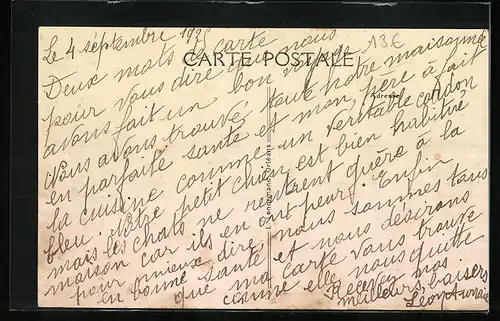 Le 4 septembre 192
13€
CARTE POSTALE
Adresse
Deux mots de carte
pour vous dire que nous
avons fait un bon voyage
Nous avons trouvé toute notre maisonnée
en parfaite santé et mon père a fait
la cuisine comme un véritable cordon
bleu. Notre petit chien est bien habitué
mais les chats ne rentrent guère à la
maison car ils en ont peur. Enfin
pour mieux dire, nous sommes tous
en bonne santé et nous désirons
que ma carte vous trouve
comme elle nous quitte
Recevez nos
meilleurs baisers
Orléans